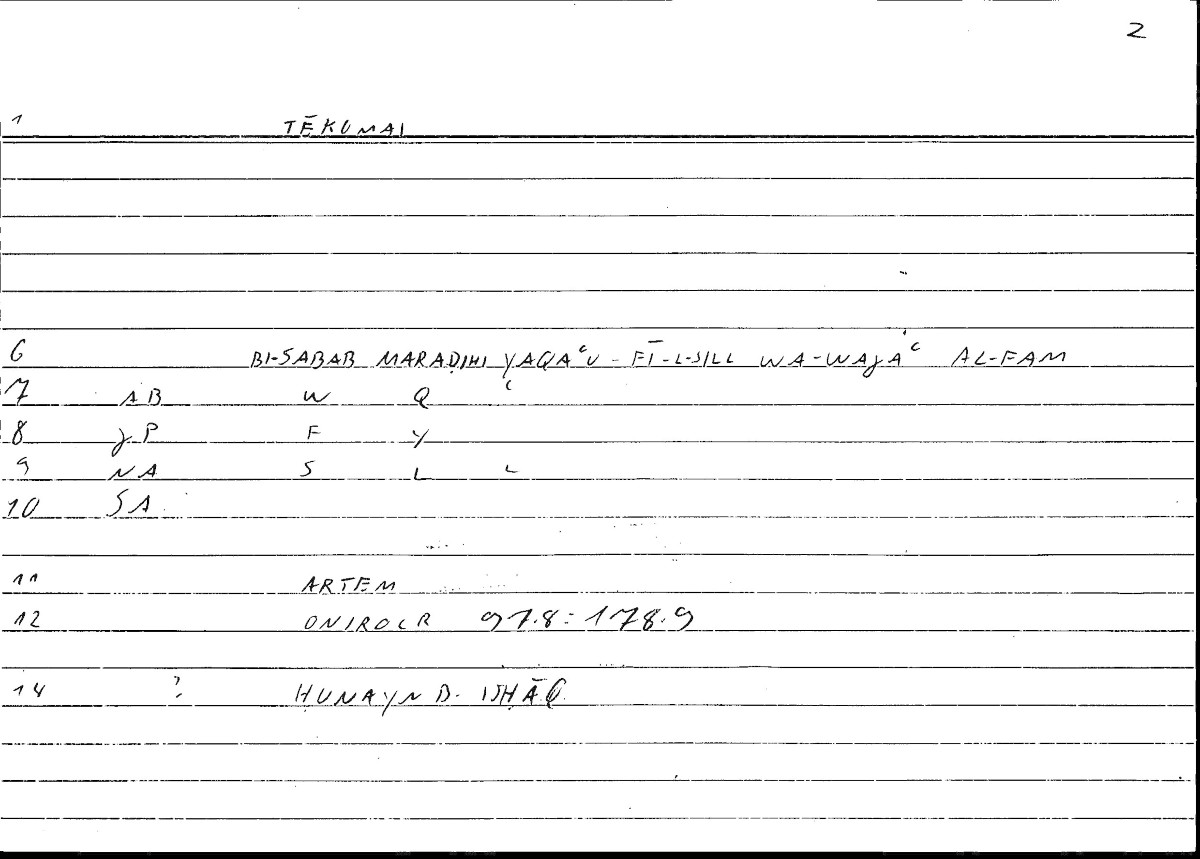 2
1 TĒKOMAI
6 BI-SABAB MARAḌIHI YAQAʿU-FĪ-L-SILL WA-WAJAʿ AL-FAM
7 AB W Q ʿ
8 JP F Y
9 NA S L L
10 SA
11 ARTEM
12 ONIROCR 97.8 = 178.9
14 ? ḤUNAYN B. ISḤĀQ